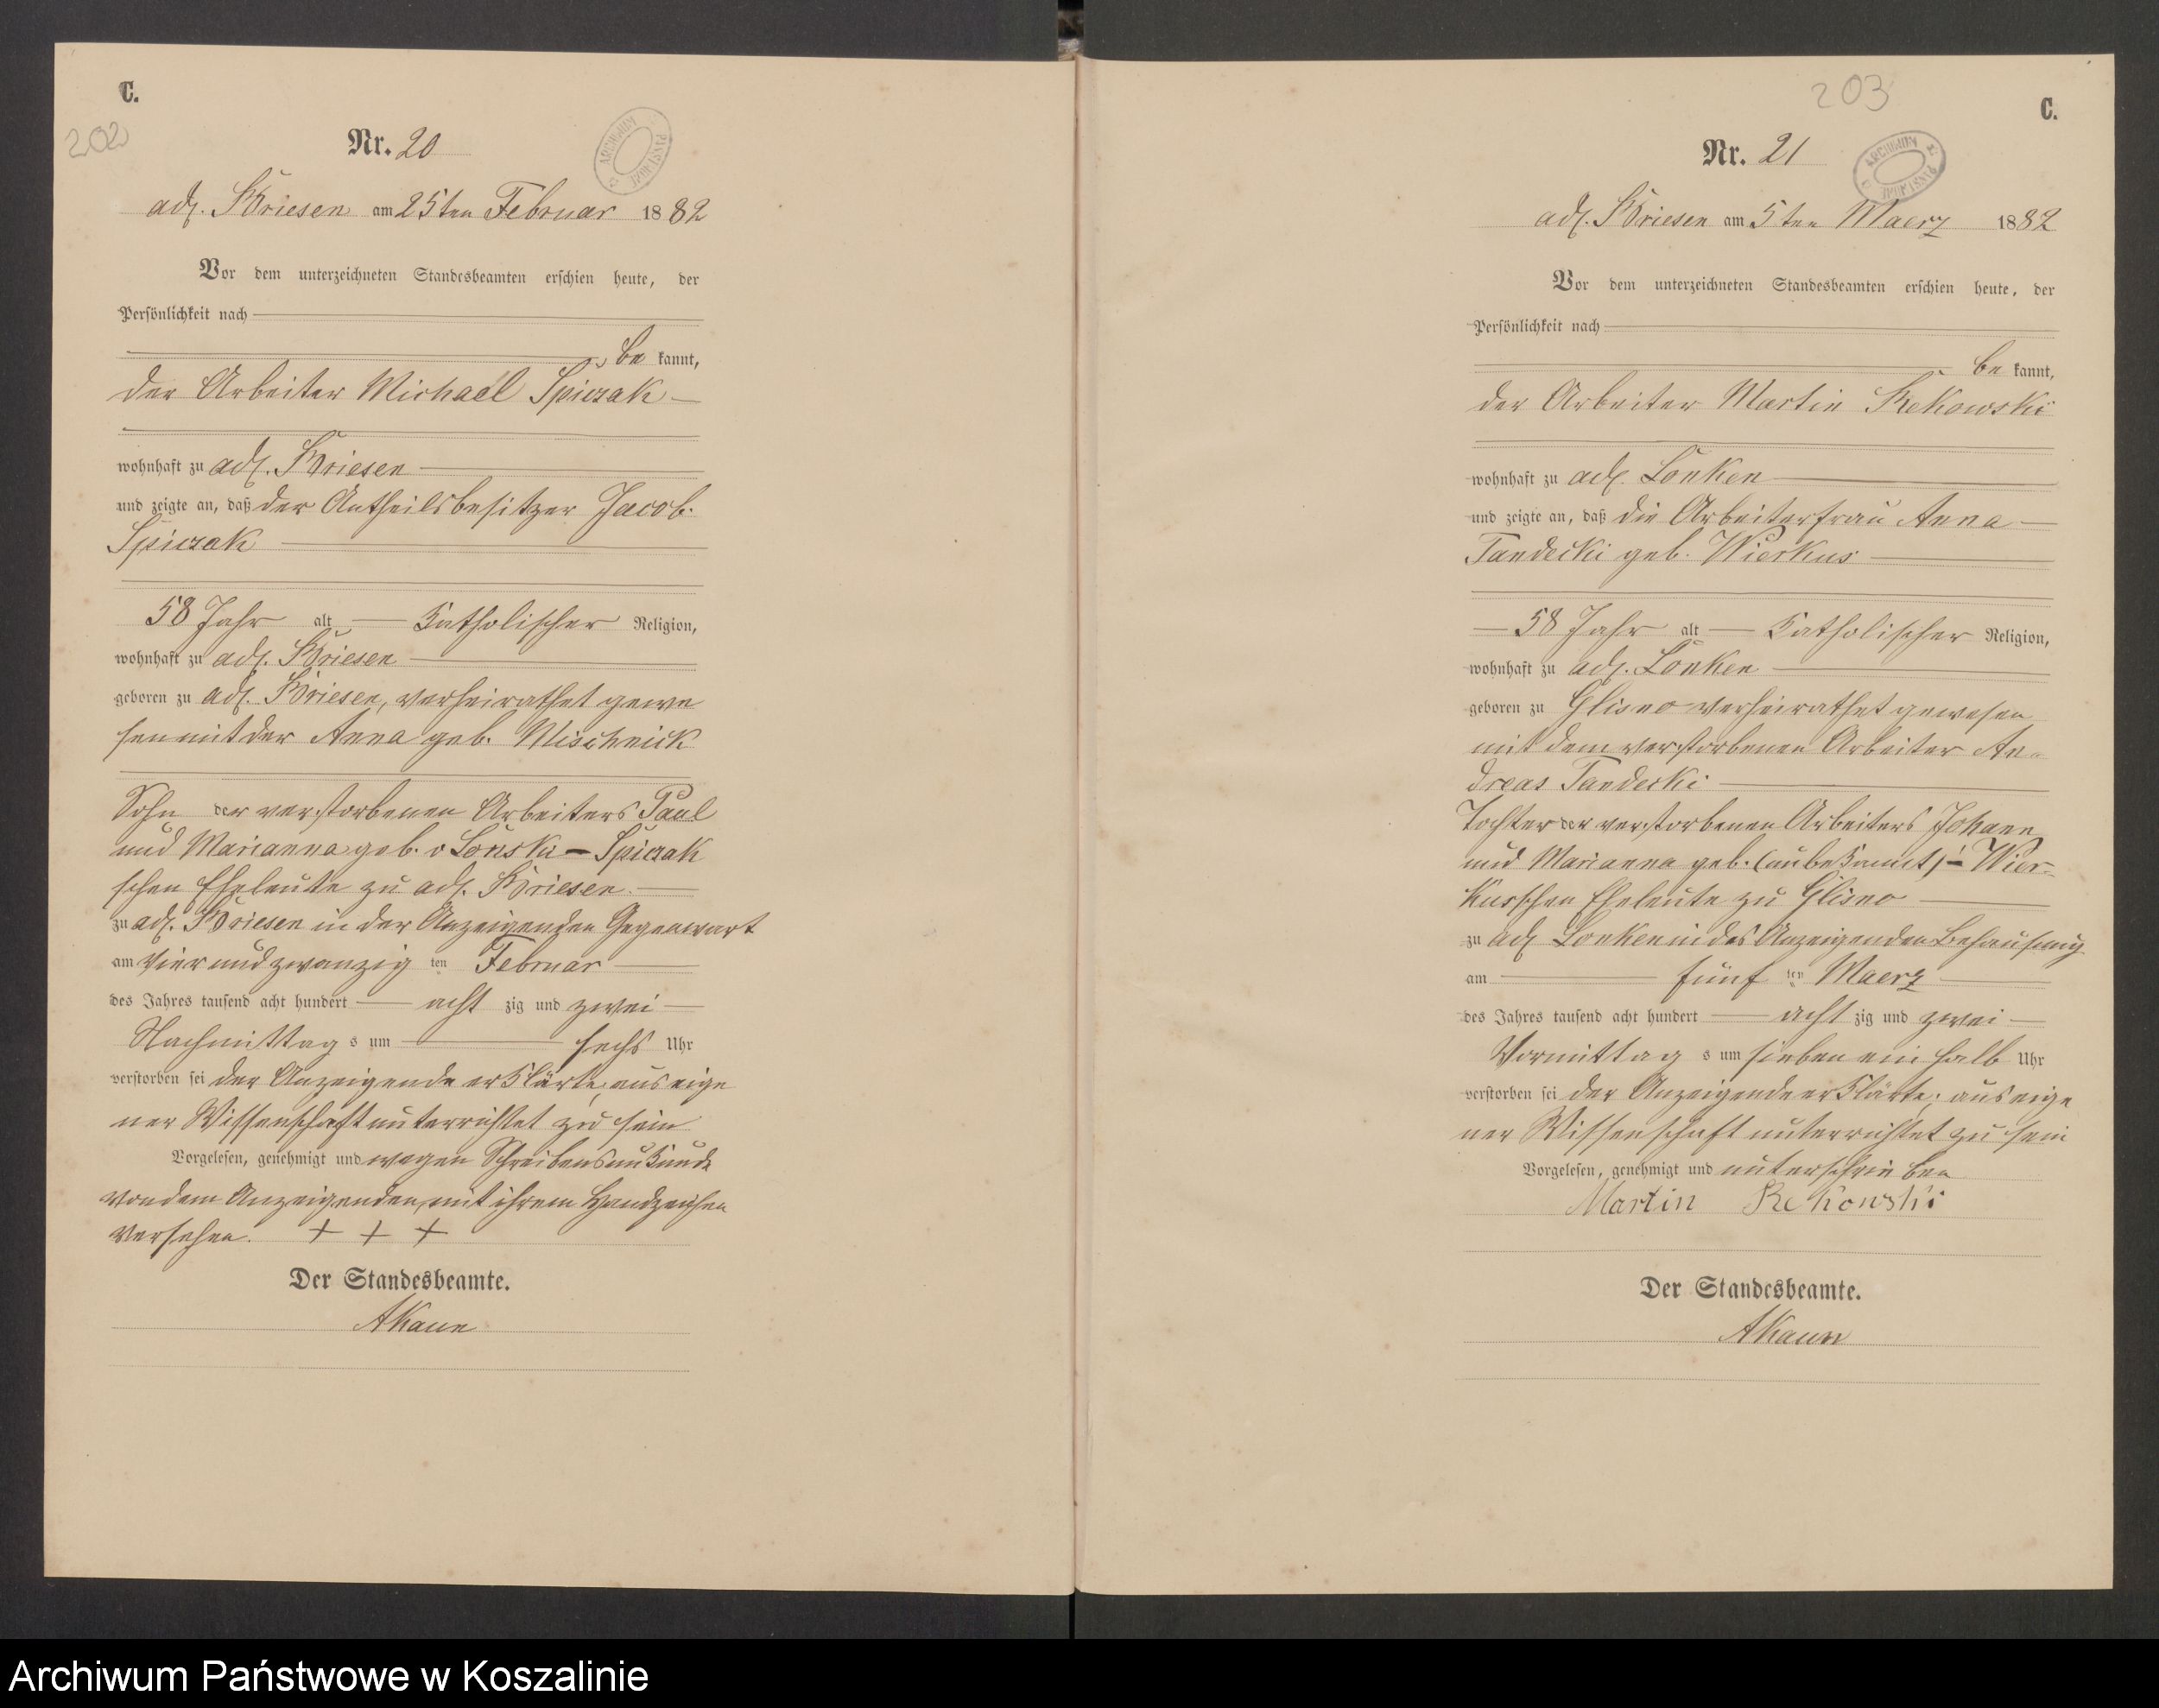 C.
202
Nr. 20
adl. Briesen am 25ten Februar 1882
Vor dem unterzeichneten Standesbeamten erschien heute, der
Persönlichkeit nach
be kannt,
der Arbeiter Michael Spiczak
wohnhaft zu adl. Briesen
und zeigte an, daß der Antheilsbesitzer Jacob
Spiczak
58 Jahr alt Katholischer Religion,
wohnhaft zu adl. Briesen
geboren zu adl. Briesen, verheirathet gewe
sen mit der Anna geb. Mischnick
Sohn der verstorbenen Arbeiters Paul
und Marianna geb. v Lonski - Spiczak
schen Eheleute zu adl. Briesen.
zu adl. Briesen in der Anzeigenden Gegenwart
am vier und zwanzig ten Februar
des Jahres tausend acht hundert acht zig und zwei
Nachmittag s um sechs Uhr
verstorben sei der Anzeigende erklärte, aus eige
ner Wissenschaft unterrichtet zu sein
Vorgelesen, genehmigt und wegen Schreibensunkunde
von dem Anzeigenden, mit ihrem Handzeichen
versehen. + + +
Der Standesbeamte.
AKaun
203
C.
Nr. 21
ARCHIWUM
adl. Briesen am 5ten Maerz 1882
Vor dem unterzeichneten Standesbeamten erschien heute, der
Persönlichkeit nach
be kannt,
der Arbeiter Martin Rekowski
wohnhaft zu adl. Lonken
und zeigte an, daß die Arbeiterfrau Anna
Tandecki geb. Wierkus
58 Jahr alt Katholischer Religion,
wohnhaft zu adl. Lonken
geboren zu Glisno verheirathet gewesen
mit dem verstorbenen Arbeiter An-
dreas Tandecki
Tochter der verstorbenen Arbeiters Johann
und Marianna geb. (unbekannt) - Wier-
kusschen Eheleute zu Glisno
zu adl Lonken in des Anzeigenden Behausung
am fünf ten Maerz
des Jahres tausend acht hundert acht zig und zwei
Vormittag s um sieben ein halb Uhr
verstorben sei der Anzeigende erklärte, aus eige
ner Wissenschaft unterrichtet zu sein
Vorgelesen, genehmigt und unterschrieben
Martin Rekowski
Der Standesbeamte.
AKaun
Archiwum Państwowe w Koszalinie